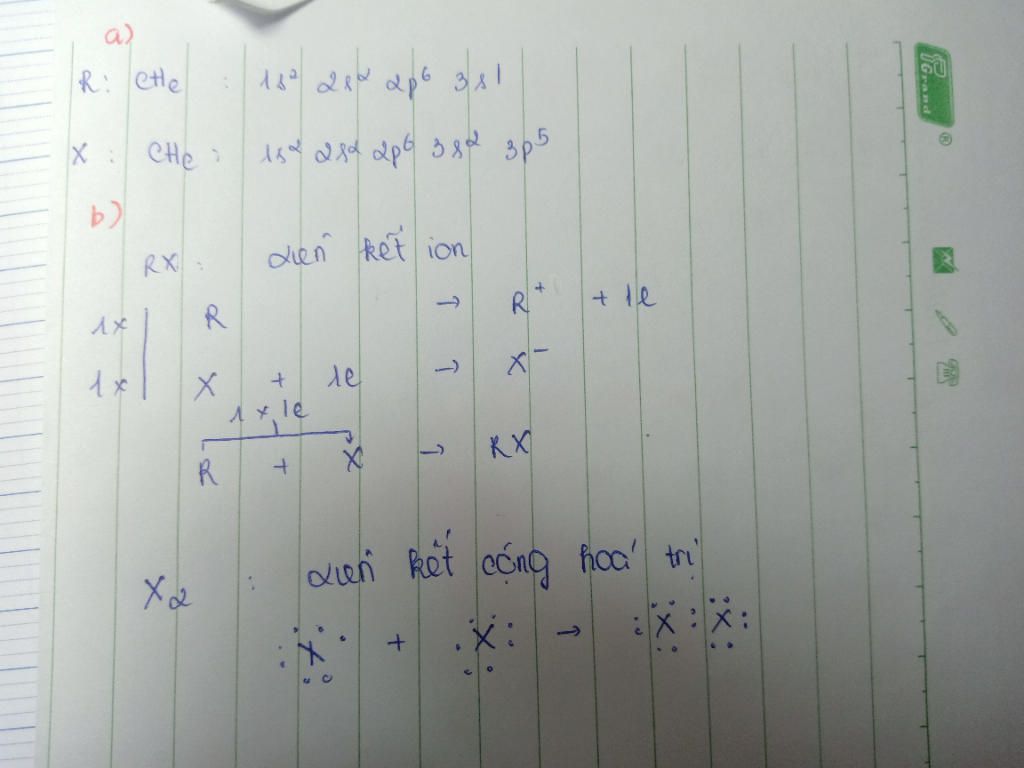 a)
R: CHe : 1s² 2s² 2p⁶ 3s¹
X : CHe : 1s² 2s² 2p⁶ 3s² 3p⁵
b)
RX : Liên kết ion
1x | R → R⁺ + 1e
1x | X + 1e → X⁻
1 x 1e
R + X → RX
X₂ : Liên kết cộng hoá trị
X + X → X : X
Grand
®